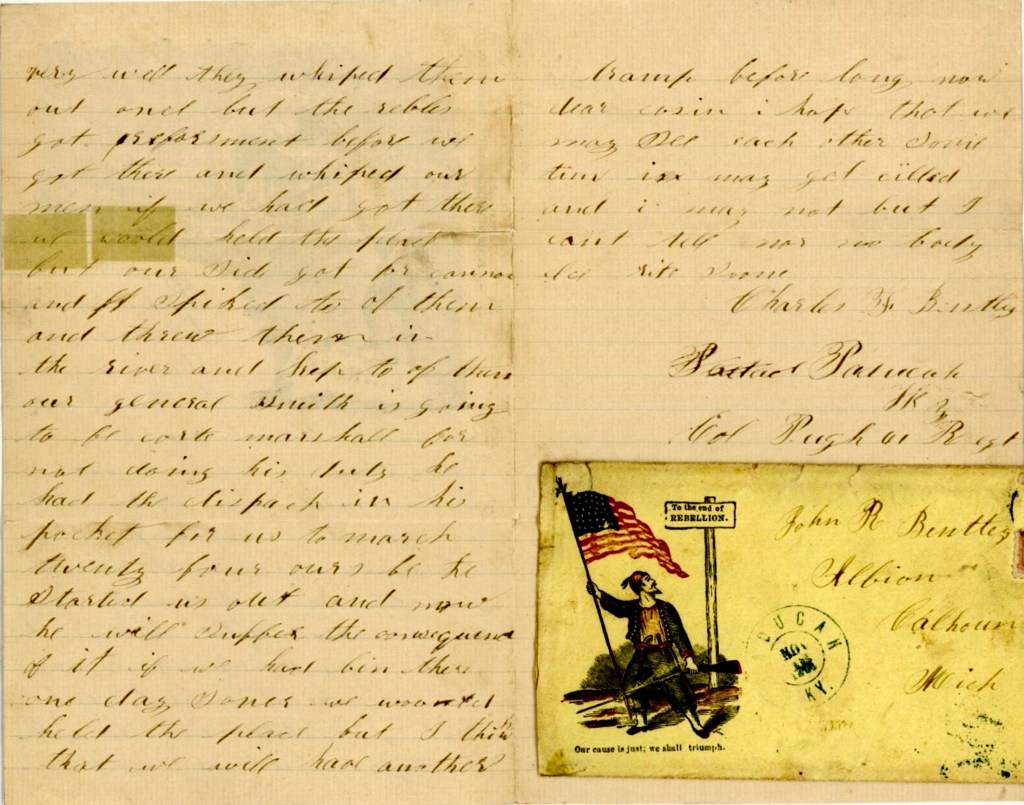 very well they whiped them
out onct but the rebles
got reeforsment before we
got there and whiped our
men if we had got there
we would held the plast
but our Side got for cannon
and Spiked to of them
and threw them in
the river and kep to of them
our general Smith is going
to be corte marshall for
not doing his duty he
had the dispach in his
pocket for us to march
twenty four ours be he
Started us out and now
he will Suffer the consequence
of it if we had bin there
one day Soner we would
held the place but I think
that we will have another
tramp before long now
dear cosin i hope that we
may See each other Some
time i may get cilled
and i may not but I
cant tell nor no body
els rite Soone
Charles Bentley
Paducah
Ky
Col Pugh 41 Regt
To the end of
REBELLION.
Our cause is just; we shall triumph.
John R Bentley
Albion
Calhoun
Mich
DUCAH
NOV
KY.